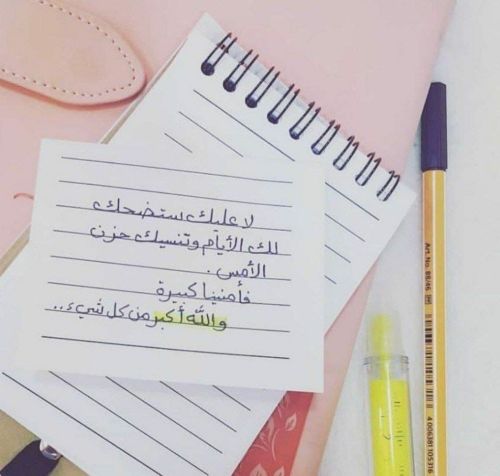 لا عليك ستضحك
لك الأيام وتنسيك حزن
الأمس .
فأمنينا كبيرة
والله أكبر من كل شيء ..
Art. No. 88/46
4 006381 105316